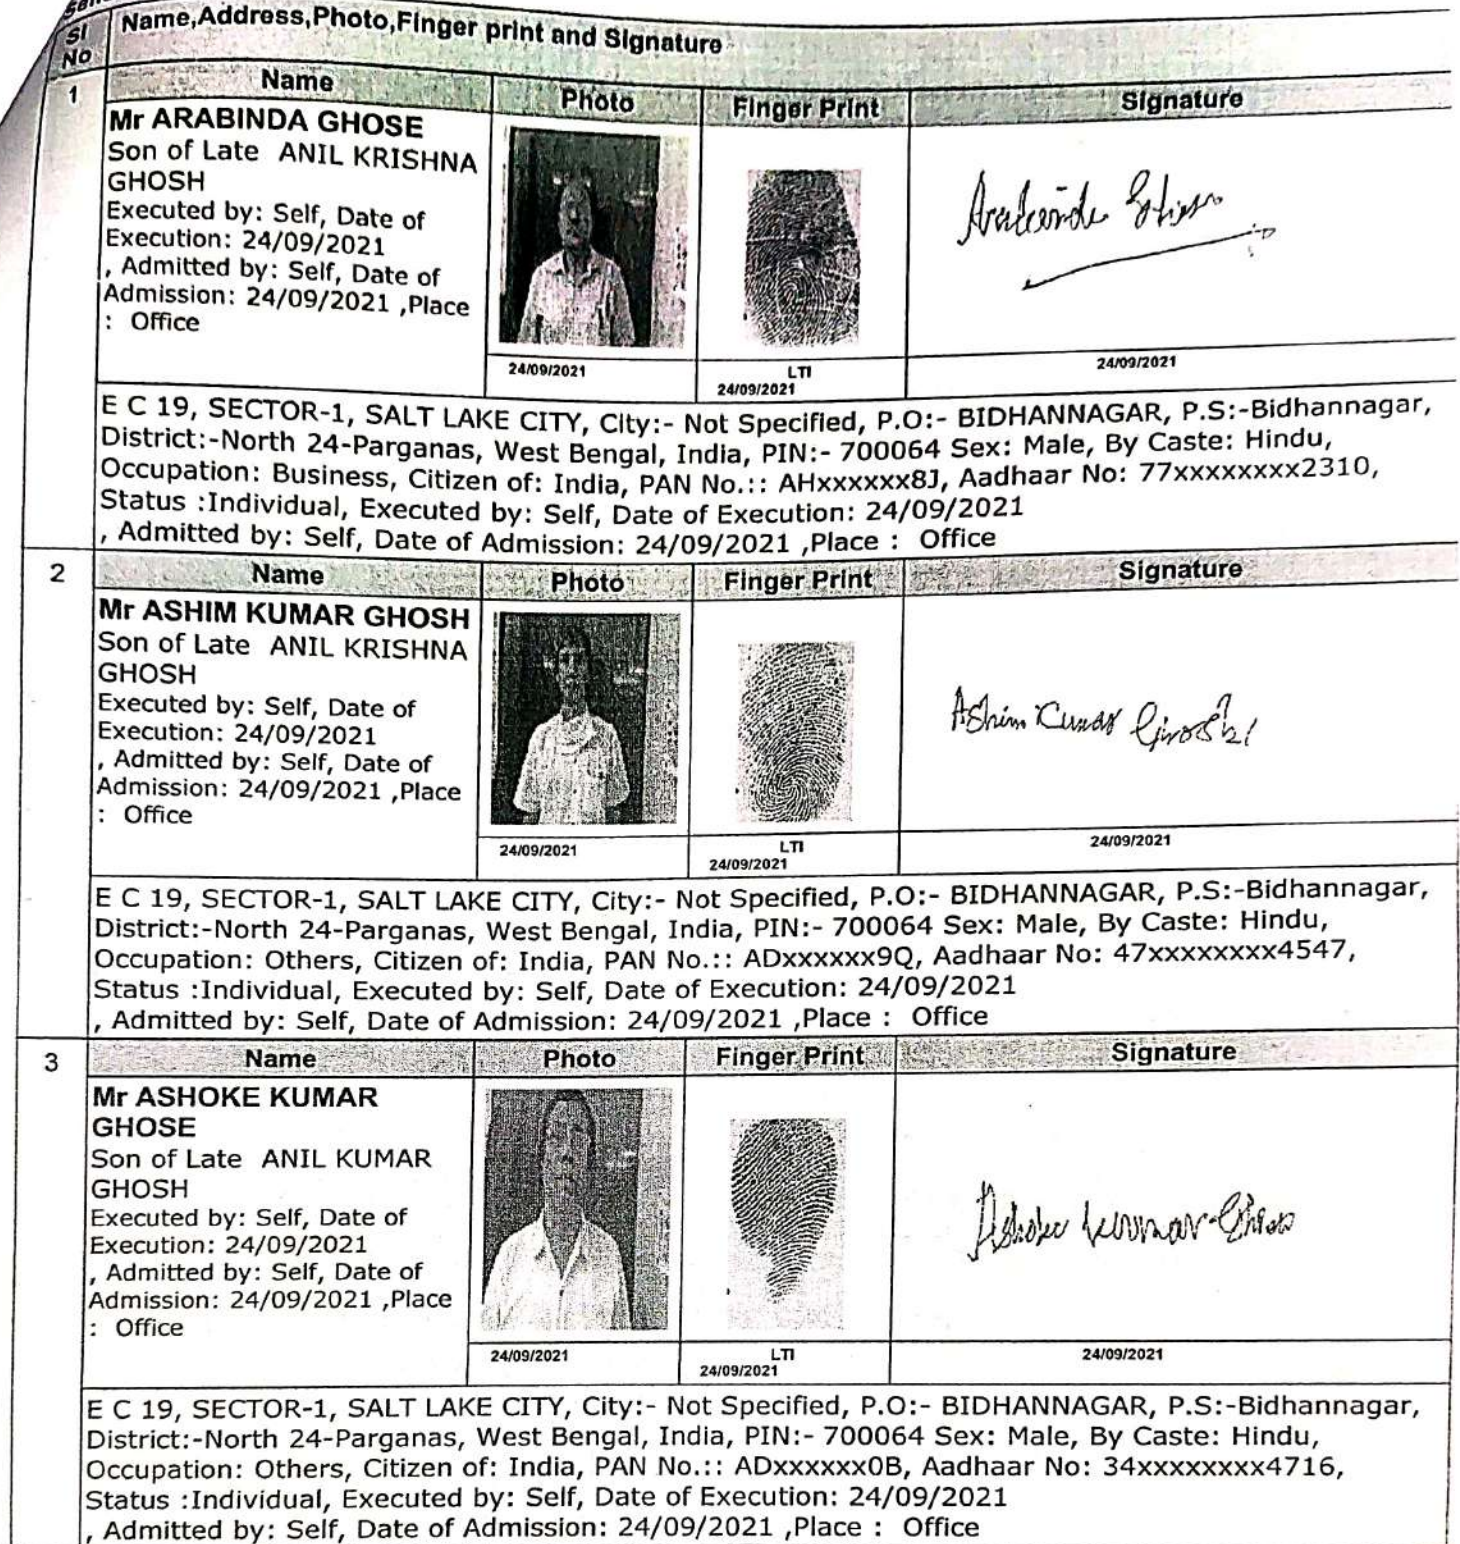 Sl No
Name,Address,Photo,Finger print and Signature
1
Name
Photo
Finger Print
Signature
Mr ARABINDA GHOSE
Son of Late ANIL KRISHNA
GHOSH
Executed by: Self, Date of
Execution: 24/09/2021
, Admitted by: Self, Date of
Admission: 24/09/2021 ,Place
: Office
24/09/2021
LTI
24/09/2021
24/09/2021
E C 19, SECTOR-1, SALT LAKE CITY, City:- Not Specified, P.O:- BIDHANNAGAR, P.S:-Bidhannagar,
District:-North 24-Parganas, West Bengal, India, PIN:- 700064 Sex: Male, By Caste: Hindu,
Occupation: Business, Citizen of: India, PAN No.:: AHxxxxxx8J, Aadhaar No: 77xxxxxxxx2310,
Status :Individual, Executed by: Self, Date of Execution: 24/09/2021
, Admitted by: Self, Date of Admission: 24/09/2021 ,Place : Office
2
Name
Photo
Finger Print
Signature
Mr ASHIM KUMAR GHOSH
Son of Late ANIL KRISHNA
GHOSH
Executed by: Self, Date of
Execution: 24/09/2021
, Admitted by: Self, Date of
Admission: 24/09/2021 ,Place
: Office
Ashim Kumar Ghosh
24/09/2021
LTI
24/09/2021
24/09/2021
E C 19, SECTOR-1, SALT LAKE CITY, City:- Not Specified, P.O:- BIDHANNAGAR, P.S:-Bidhannagar,
District:-North 24-Parganas, West Bengal, India, PIN:- 700064 Sex: Male, By Caste: Hindu,
Occupation: Others, Citizen of: India, PAN No.:: ADxxxxxx9Q, Aadhaar No: 47xxxxxxxx4547,
Status :Individual, Executed by: Self, Date of Execution: 24/09/2021
, Admitted by: Self, Date of Admission: 24/09/2021 ,Place : Office
3
Name
Photo
Finger Print
Signature
Mr ASHOKE KUMAR
GHOSE
Son of Late ANIL KUMAR
GHOSH
Executed by: Self, Date of
Execution: 24/09/2021
, Admitted by: Self, Date of
Admission: 24/09/2021 ,Place
: Office
Ashoke Kumar Ghose
24/09/2021
LTI
24/09/2021
24/09/2021
E C 19, SECTOR-1, SALT LAKE CITY, City:- Not Specified, P.O:- BIDHANNAGAR, P.S:-Bidhannagar,
District:-North 24-Parganas, West Bengal, India, PIN:- 700064 Sex: Male, By Caste: Hindu,
Occupation: Others, Citizen of: India, PAN No.:: ADxxxxxx0B, Aadhaar No: 34xxxxxxxx4716,
Status :Individual, Executed by: Self, Date of Execution: 24/09/2021
, Admitted by: Self, Date of Admission: 24/09/2021 ,Place : Office